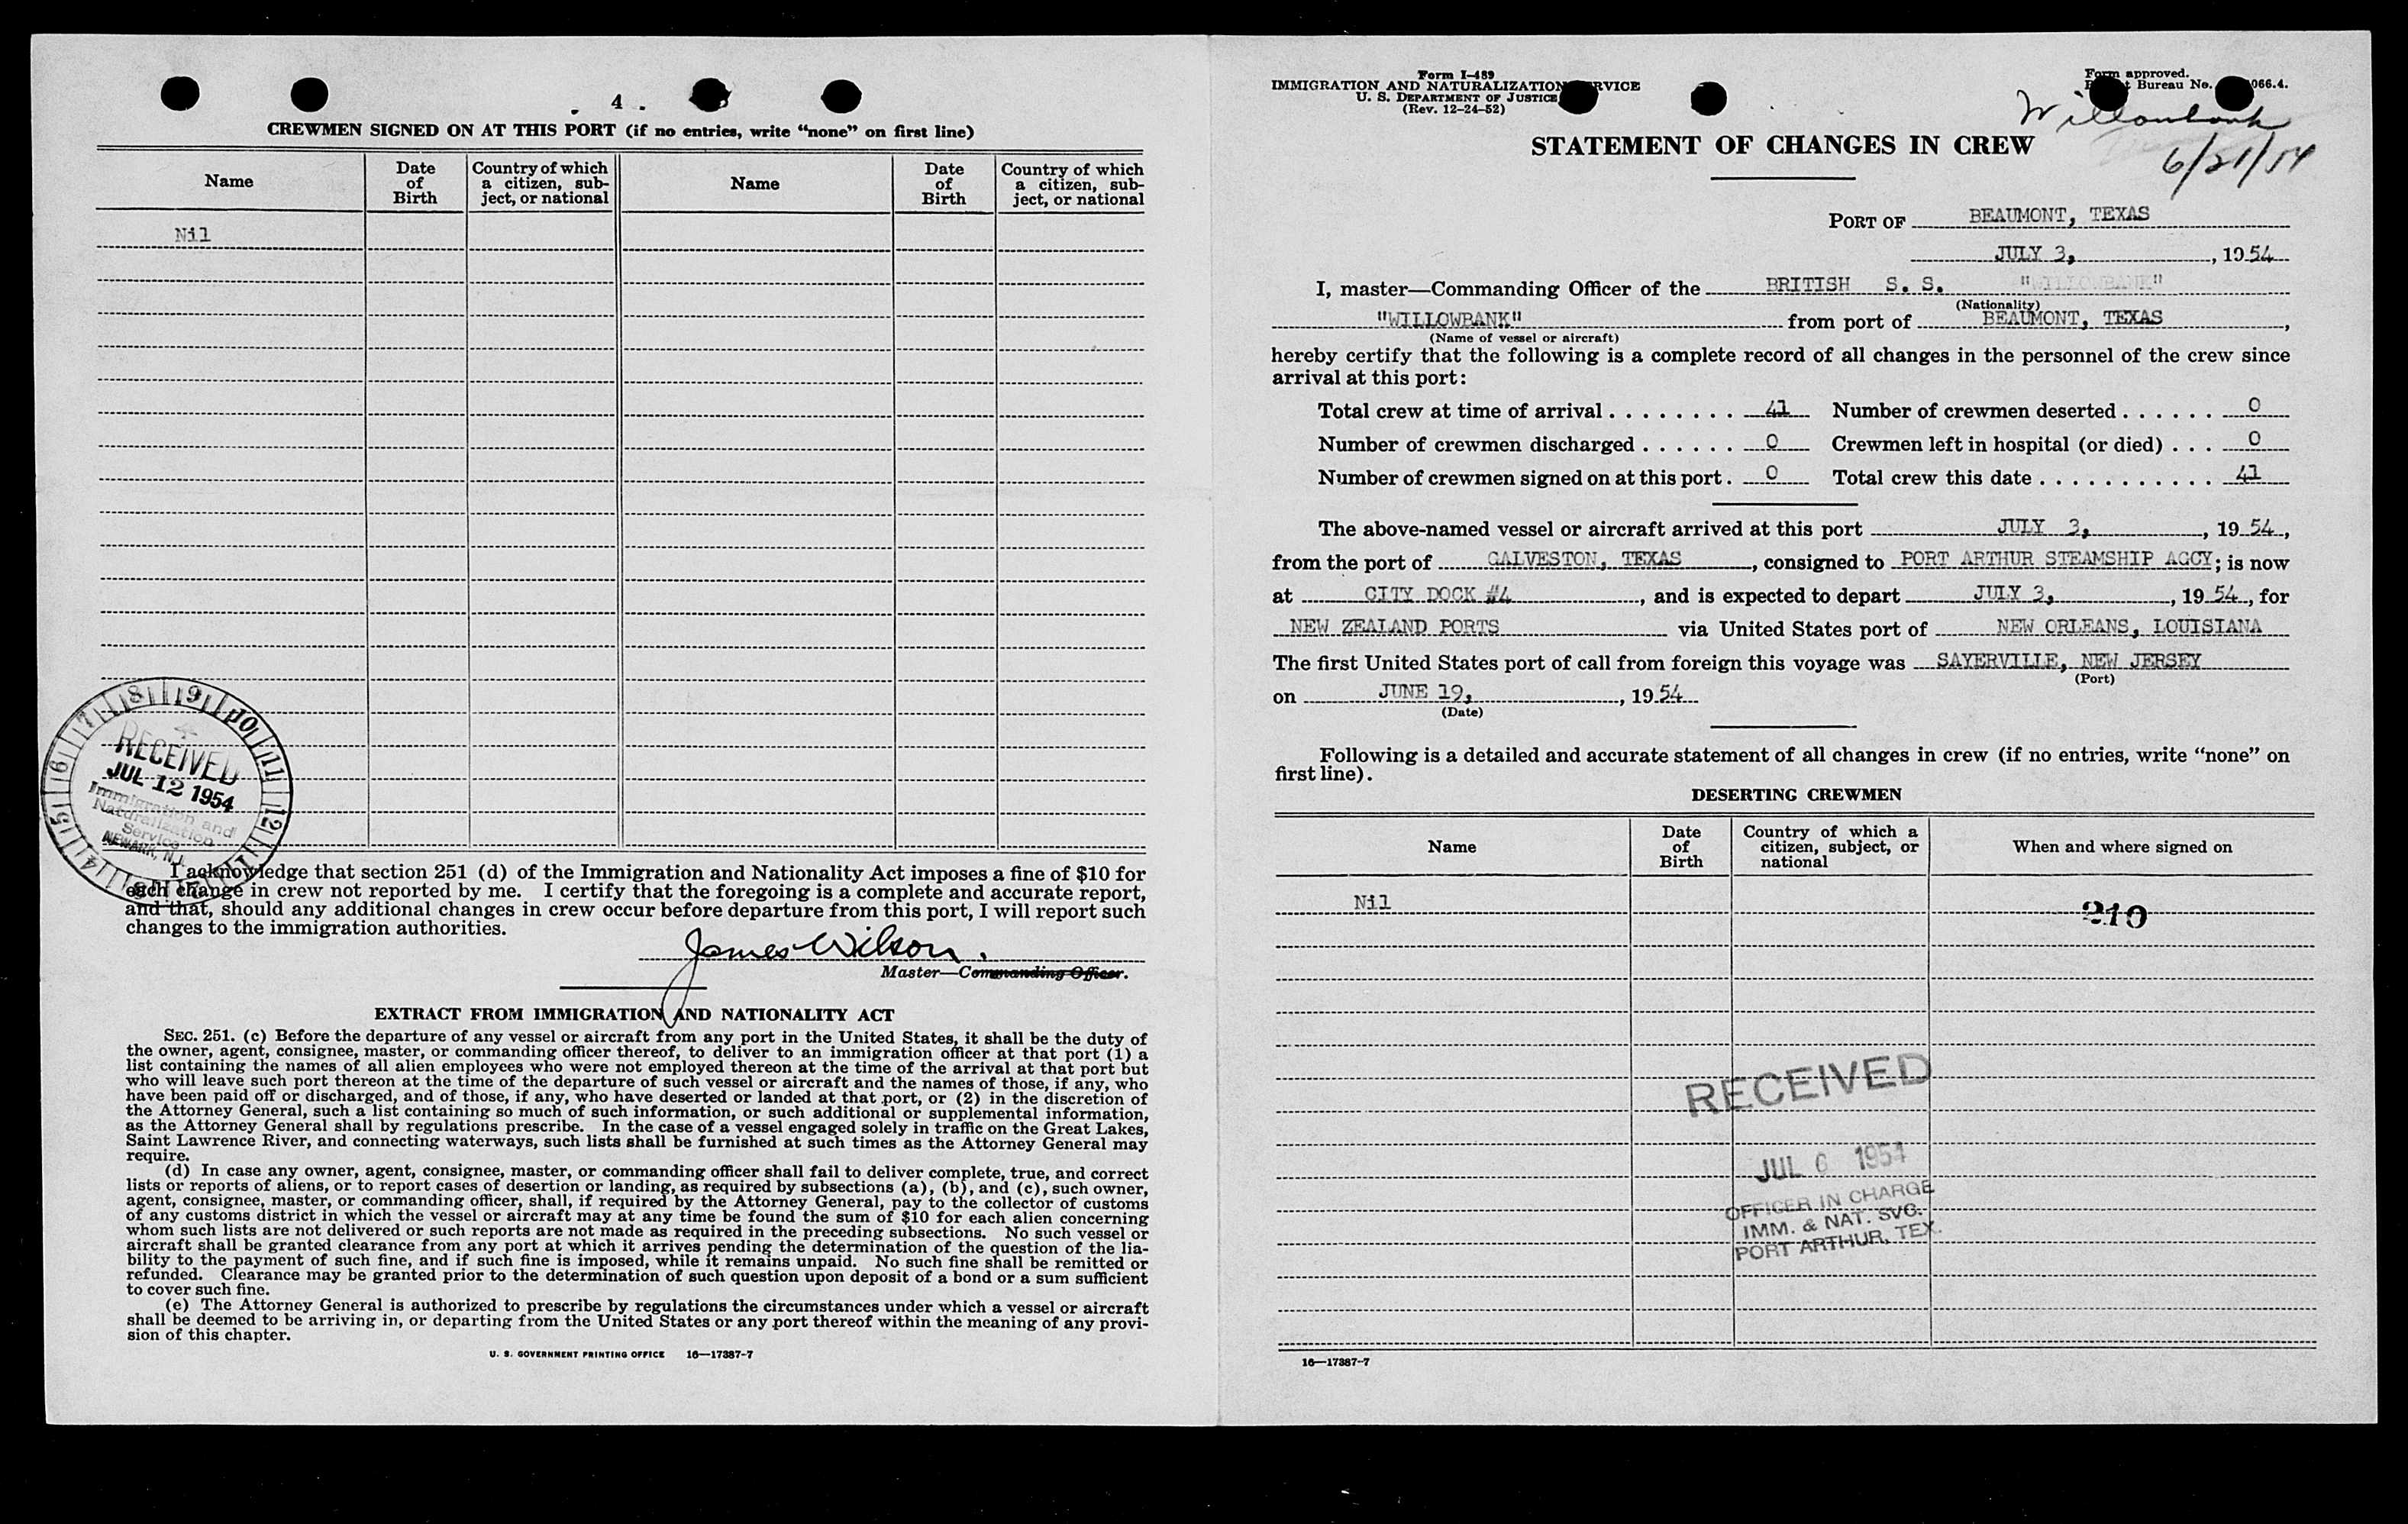 4
CREWMEN SIGNED ON AT THIS PORT (if no entries, write “none” on first line)
Name
Date of Birth
Country of which a citizen, subject, or national
Name
Date of Birth
Country of which a citizen, subject, or national
Nil
RECEIVED
JUL 12 1954
Immigration and
Naturalization
Service
NEWARK, N.J.
I acknowledge that section 251 (d) of the Immigration and Nationality Act imposes a fine of $10 for
each change in crew not reported by me. I certify that the foregoing is a complete and accurate report,
and that, should any additional changes in crew occur before departure from this port, I will report such
changes to the immigration authorities.
James Wilson.
Master—Commanding Officer.
EXTRACT FROM IMMIGRATION AND NATIONALITY ACT
SEC. 251. (c) Before the departure of any vessel or aircraft from any port in the United States, it shall be the duty of
the owner, agent, consignee, master, or commanding officer thereof, to deliver to an immigration officer at that port (1) a
list containing the names of all alien employees who were not employed thereon at the time of the arrival at that port but
who will leave such port thereon at the time of the departure of such vessel or aircraft and the names of those, if any, who
have been paid off or discharged, and of those, if any, who have deserted or landed at that port, or (2) in the discretion of
the Attorney General, such a list containing so much of such information, or such additional or supplemental information,
as the Attorney General shall by regulations prescribe. In the case of a vessel engaged solely in traffic on the Great Lakes,
Saint Lawrence River, and connecting waterways, such lists shall be furnished at such times as the Attorney General may
require.
(d) In case any owner, agent, consignee, master, or commanding officer shall fail to deliver complete, true, and correct
lists or reports of aliens, or to report cases of desertion or landing, as required by subsections (a), (b), and (c), such owner,
agent, consignee, master, or commanding officer, shall, if required by the Attorney General, pay to the collector of customs
of any customs district in which the vessel or aircraft may at any time be found the sum of $10 for each alien concerning
whom such lists are not delivered or such reports are not made as required in the preceding subsections. No such vessel or
aircraft shall be granted clearance from any port at which it arrives pending the determination of the question of the lia-
bility to the payment of such fine, and if such fine is imposed, while it remains unpaid. No such fine shall be remitted or
refunded. Clearance may be granted prior to the determination of such question upon deposit of a bond or a sum sufficient
to cover such fine.
(e) The Attorney General is authorized to prescribe by regulations the circumstances under which a vessel or aircraft
shall be deemed to be arriving in, or departing from the United States or any port thereof within the meaning of any provi-
sion of this chapter.
U. S. GOVERNMENT PRINTING OFFICE 16—17387-7
Form I-489
IMMIGRATION AND NATURALIZATION SERVICE
U. S. DEPARTMENT OF JUSTICE
(Rev. 12-24-52)
Form approved.
Bureau No. 066.4.
Willowbank
6/21/54
STATEMENT OF CHANGES IN CREW
PORT OF BEAUMONT, TEXAS
JULY 3, 1954
I, master—Commanding Officer of the BRITISH S. S. "WILLOWBANK"
(Nationality)
"WILLOWBANK" from port of BEAUMONT, TEXAS,
(Name of vessel or aircraft)
hereby certify that the following is a complete record of all changes in the personnel of the crew since
arrival at this port:
Total crew at time of arrival 41 Number of crewmen deserted 0
Number of crewmen discharged 0 Crewmen left in hospital (or died) 0
Number of crewmen signed on at this port 0 Total crew this date 41
The above-named vessel or aircraft arrived at this port JULY 3, 1954,
from the port of GALVESTON, TEXAS, consigned to PORT ARTHUR STEAMSHIP AGCY; is now
at CITY DOCK #4, and is expected to depart JULY 3, 1954, for
NEW ZEALAND PORTS via United States port of NEW ORLEANS, LOUISIANA
The first United States port of call from foreign this voyage was SAYERVILLE, NEW JERSEY
(Port)
on JUNE 19, 1954
(Date)
Following is a detailed and accurate statement of all changes in crew (if no entries, write “none” on
first line).
DESERTING CREWMEN
Name
Date of Birth
Country of which a citizen, subject, or national
When and where signed on
Nil
210
RECEIVED
JUL 6 1954
OFFICER IN CHARGE
IMM. & NAT. SVC.
PORT ARTHUR, TEX.
16—17387-7